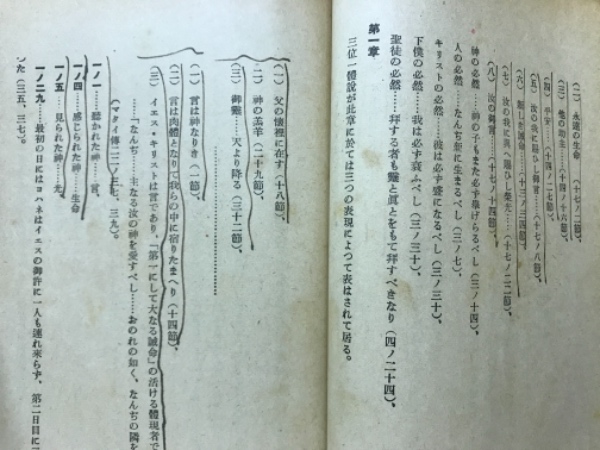 (二) 永遠の生命　(十七ノ二節)、
(三) 他の助主　(十四ノ十六節)、
(四) 平安……(十四ノ二七節)、
(五) 汝の我に賜ひし御言……(十七ノ八節)、
(六) 新しき誡命……(十三ノ三四節)、
(七) 汝の我に與へ賜ひし榮光……(十七ノ二二節)、
(八) 汝の御言……(十七ノ十四節)、
神の必然……神の子もまた必ず擧げらるべし (三ノ十四)、
人の必然……なんぢら新に生まるべし (三ノ七)、
キリストの必然……彼は必ず盛になるべし (三ノ三十)、
下僕の必然……我は必ず衰ふべし (三ノ三十)、
聖徒の必然……拜する者も靈と眞とをもて拜すべきなり (四ノ二十四)、
第一章
三位一體說が此章に於ては三つの表現によつて表はされて居る。
(一) 父の懷裡に在す (十八節)、
(二) 神の羔羊 (二十九節)、
(三) 御靈……天より降る (三十二節)、
(一) 言は神なりき (一節)、
(二) 言は肉體となりて我らの中に宿りたまへり (十四節)、
(三) イエス・キリストは言であり、「第一にして大なる誡命」の活ける體現者で
「なんぢ……主なる汝の神を愛すべし……おのれの如く、なんぢの隣を
(マタイ傳二二ノ三七、三九)。
一ノ一……聽かれた神……言、
一ノ四……感じられた神……生命
一ノ五……見られた神……光、
一ノ二九……最初の日にはヨハネはイエスの御許に一人も連れ來らず、第二日目に二
った (三五、三七)。